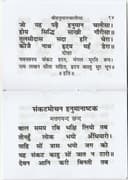 श्रीहनुमानचालीसा
जो यह पढ़ै हनुमान चालीसा ।
होय सिद्धि साखी गौरीसा ॥
तुलसीदास सदा हरि चेरा ।
कीजै नाथ हृदय महँ डेरा ॥
दोहा
पवनतनय संकट हरन, मंगल मूरति रूप ।
राम लखन सीता सहित, हृदय बसहु सुर भूप ॥
॥ इति ॥
संकटमोचन हनुमानाष्टक
मत्तगयन्द छन्द
बाल समय रबि भक्षि लियो तब
तीनहुँ लोक भयो अँधियारो ।
ताहि सों त्रास भयो जग को
यह संकट काहु सों जात न टारो ॥
देवन आनि करी बिनती तब